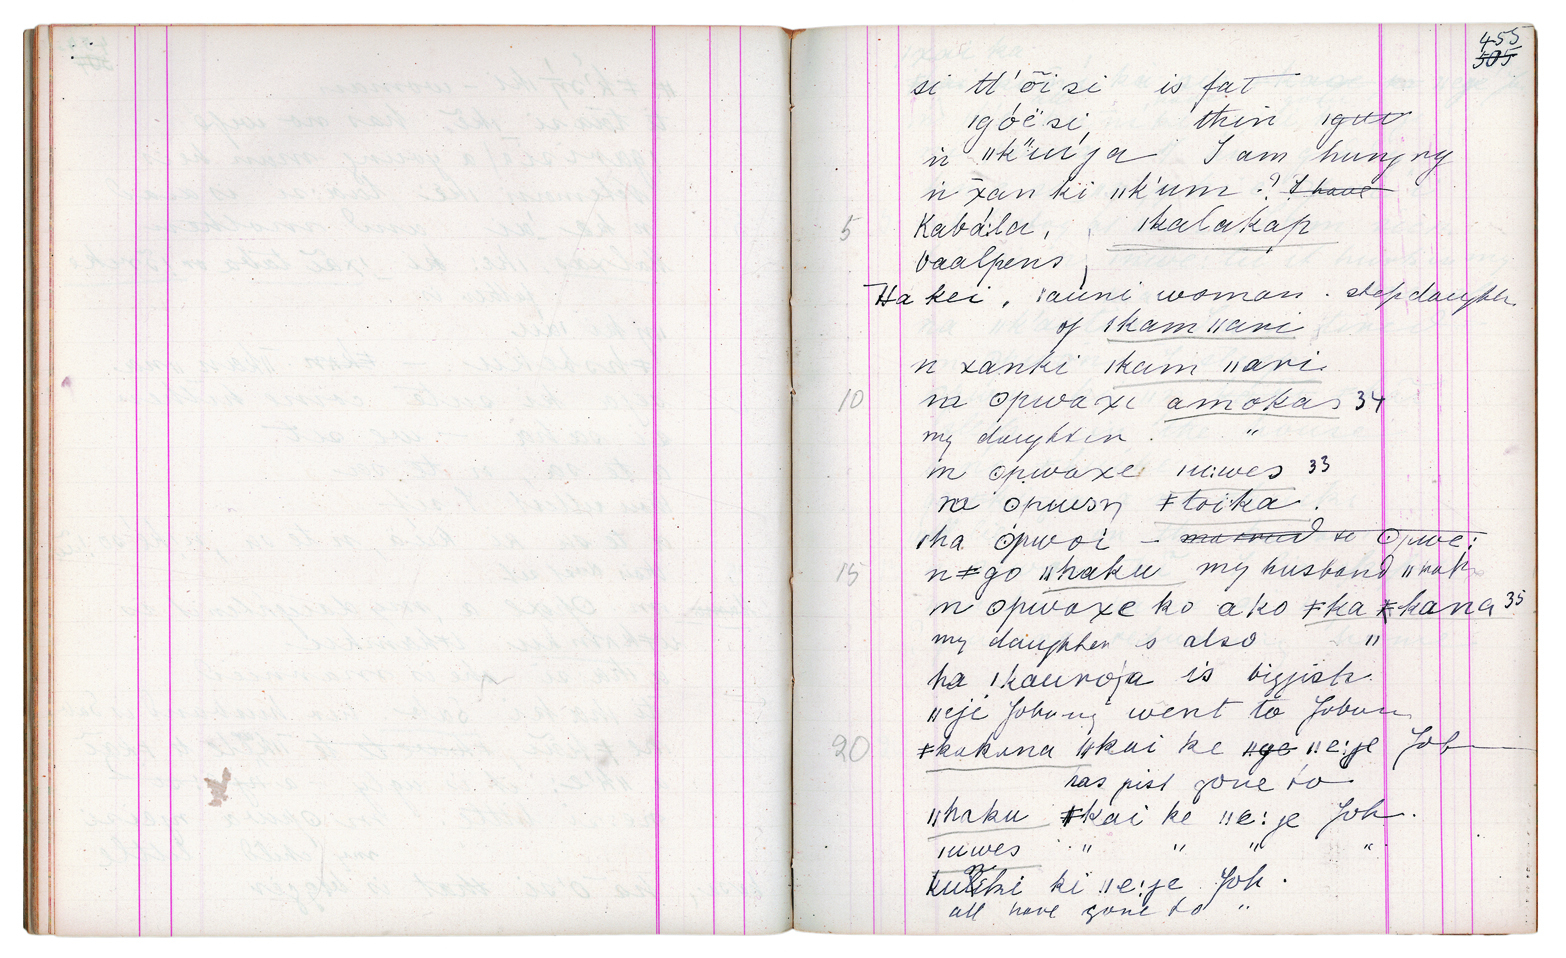 455
505
si tl'õi si is fat
ǀgóësi, thin ǀgur
ṅ ǁk"uı'ja I am hungry
ṅ x̄an ki ǁk'um .? I have
5 Kabá:la, ǀkalakap
vaalpens,
Ha kei, ǀauni woman. stepdaughter
of ǀkam ǁari
n xanki ǀkam ǁari.
10 na ʘpwaxe amokas 34
my daughter. "
m ʘpwaxe ǀu:wes 33
na ʘpwesn ǂtoika.
ǀha ʘpwoi – married to ʘpwe:
15 n ǂgo ǁhaku my husband
m ʘpwaxe ko ako ǂka ǂkana 35
my daughter is also "
ha ǀkauroǀa is biggish
ǁeje Joburg went to Joburg
20 ǂkakana ǁkai ke ǁge ǁe:je Joh
has just gone to
ǁhaku ǂkai ke ǁe:je Joh.
ǀuwes " " " "
ki ǁe:je Joh.
all have gone to "